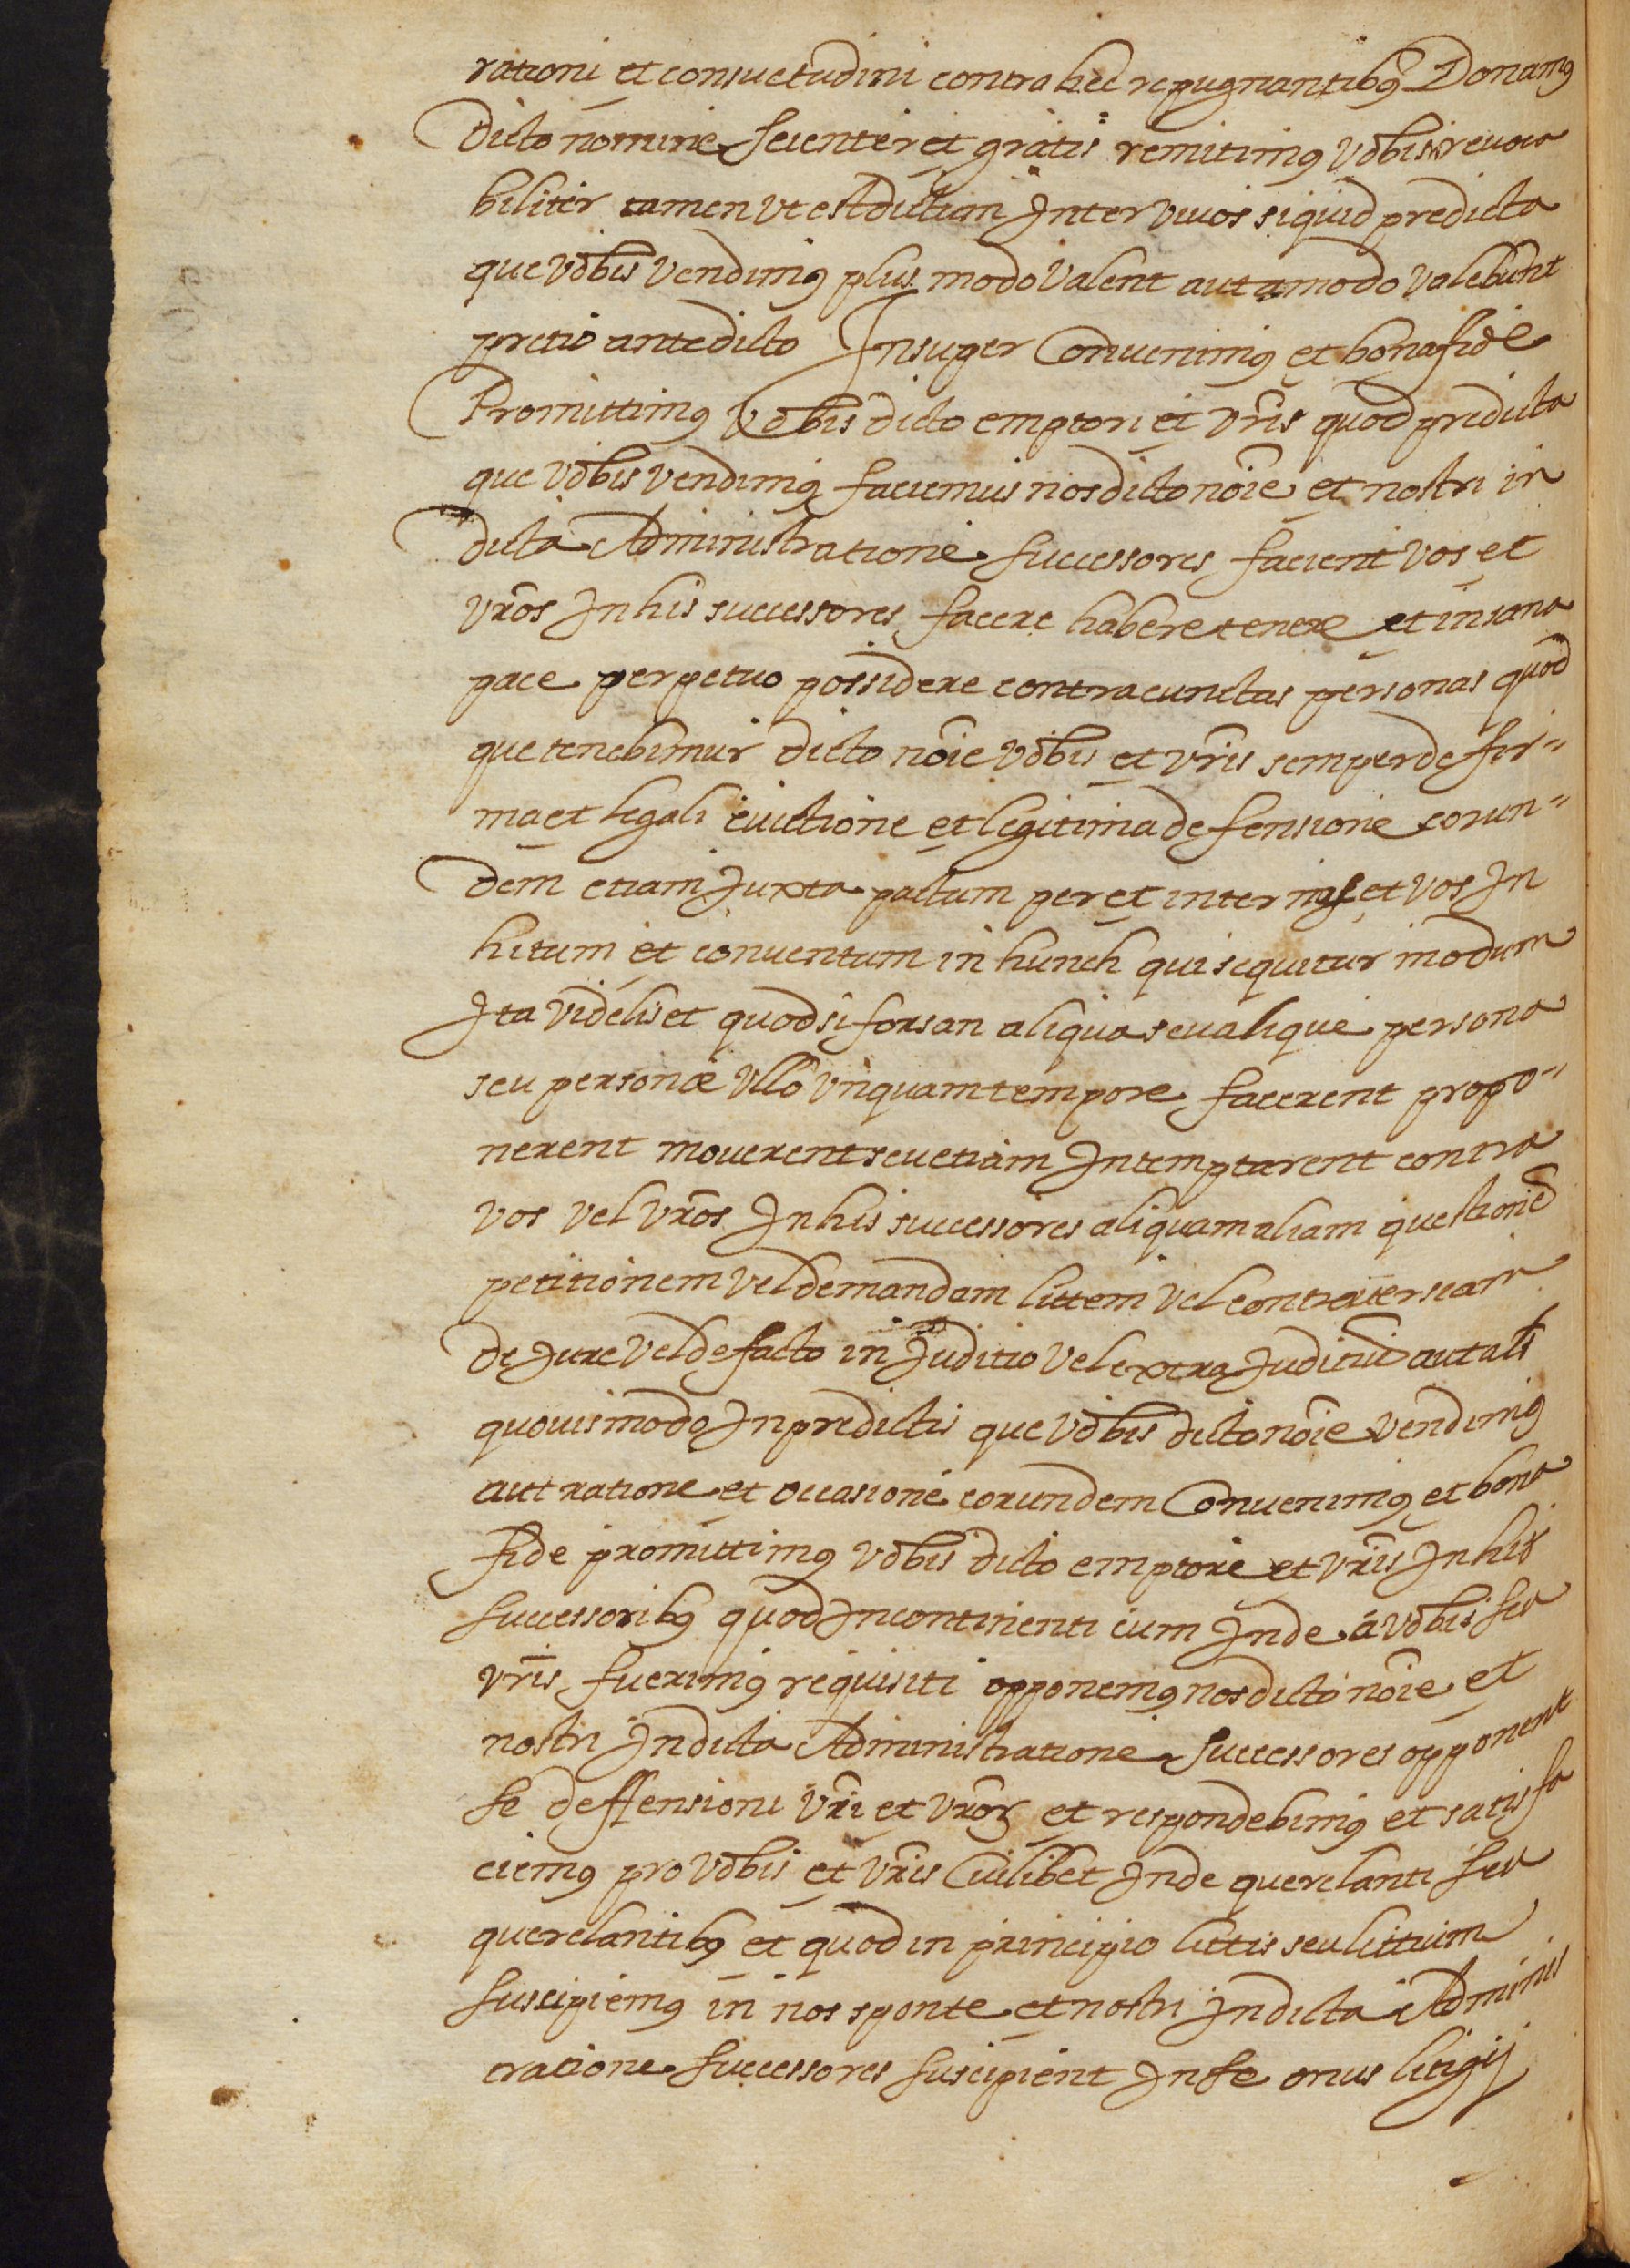 rationi et consuetudini contra hec repugnantibꝯ Donamꝯ
dicto nomine scienter et gratis remitimꝯ vobis irreuoca
biliter tamen vt est dictum Inter viuos si quid predicta
que vobis vendimꝯ plus modo valent aut amodo valebunt
pretio antedicto Insuper Conuenimꝯ et bona fide
Promittimꝯ vobis dicto emptori et vr̃is quod predicta
que vobis vendimꝯ faciemus nos dicto nõie et nostri in
dicta Administratione successores facient vos et
vr̃os In his successores facere habere tenere et in sana
pace perpetuo possidere contra cunctas personas quod
que tenebimur dicto nõie vobis et vr̃is semper de fir=
ma et legali euictione et legitima defensione eorun=
dem etiam Juxta pactum per et inter nos et vos In
hitum et conuentum in hunch qui sequitur modum
Ita videliset quod si forsan aliqua seu alique persona
seu personæ vllo vnquam tempore facerent propo=
nerent mouerent seu etiam Intemptarent contra
vos vel vr̃os In his successores aliquam aliam questionẽ
petitionem vel demandam littem vel controuersiam
de Jure vel de facto in Juditio vel extra Juditiũ aut als̃
quouismodo In predictis que vobis dicto nõie vendimꝯ
aut ratione et occasione eorundem Conuenimꝯ et bona
fide promittimꝯ vobis dicto emptore et vr̃is In his
successoribꝯ quod Incontinenti cum Inde á vobis seu
vr̃is fuerimꝯ requisiti opponemꝯ nos dicto nõie et
nostri In dicta Administratione successores opponent
se deffensioni vr̃i et vr̃oꝝ et respondebimꝯ et satisfa
ciemꝯ pro vobis et vr̃is Cuilibet Inde querelanti seu
querelantibꝯ et quod in principio littis seu littium
suscipiemꝯ in nos sponte et nostri In dicta Adminis
tratione successores suscipient In se onus litigij